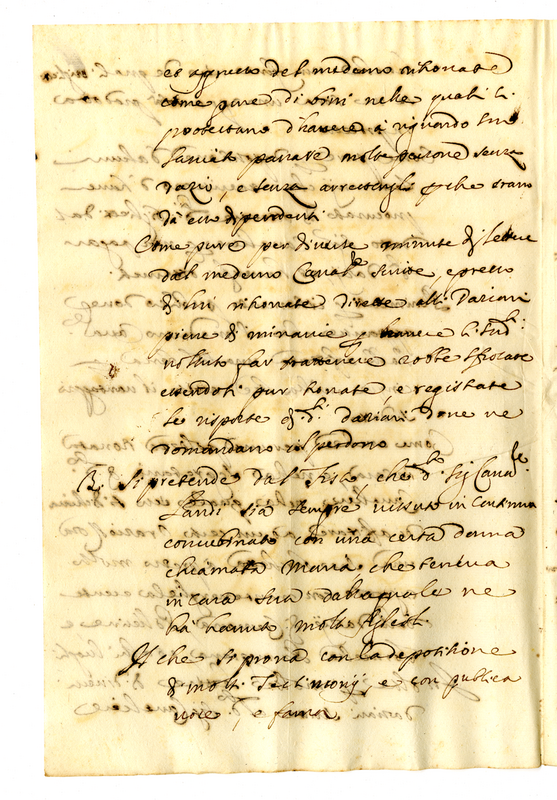 et apresso del medemo ritrovate
come pure di Simi nelle quali li
protestano d'havere à riguardo suo
lasciato passare molte persone senza
Dazio, e senza arrestargli perche erano
da esso dipendenti
Come pure per diverse minute di lettere
dal medemo Caval.re scritte, e presso
di lui ritrovate dirette alli Daziari
piene di minaccie havere li sud.i
voluto far trattenere robbe sfrosate
essendosi pur trovate, e registrate
le risposte de d.i daziari dove ne
domandano il perdono
B. Si pretende dal fisco, che d.o Sig. Caval.re
Landi sia sempre vissuto in continuo
concubinato con una certa donna
chiamata Maria che teneva
in casa sua dalla quale ne
hà havuto molti figlioli.
Il che si prova con la depositione
di molti Testimonij, e con publica
voce, e fama